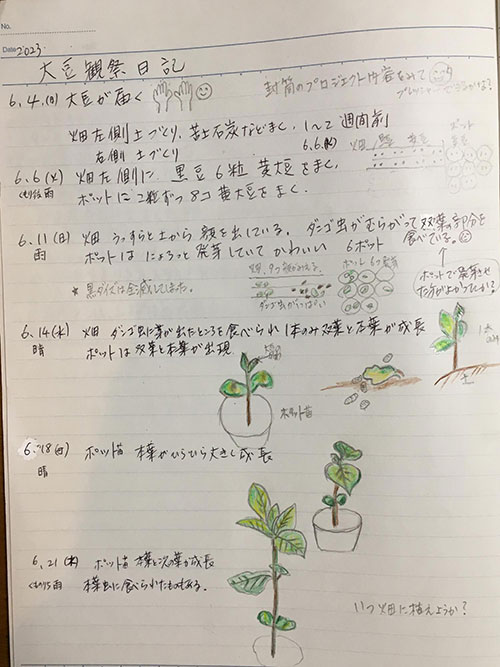 No.
Date 2023
大豆観察日記
6.4.(日) 大豆が届く
封筒のプロジェクト内容をみて
プレッシャー
畑左側土づくり、苦土石灰などまく、1~2週間前
右側 土づくり
6.6(火) 畑左側に 黒豆6粒 黄大豆をまく。
くもり後雨 ポットに2粒ずつ8コ黄大豆をまく。
6.6(火) 畑
ポット
6.11(日) 畑 うっすらと土から顔を出している。ダンゴ虫がむらがって双葉の部分を
食べている。
雨 ポットは にょろっと発芽していて かわいい 6ポット
★黒ダイズは全滅してしまった。
ダンゴ虫がいっぱい
ポットで発芽させ
た方がよかったか?
6.14(水) 畑 ダンゴ虫に芽が出たところを食べられ1本のみ双葉と本葉が成長
晴 ポットは 双葉と本葉が出現
ポット苗
土
6.18(日) ポット苗 本葉がひらひら大きく成長
晴
6.21(水) ポット苗 本葉と次の葉が成長
くもり後雨 本葉虫に食べられたものもある。
いつ畑に植えようか?